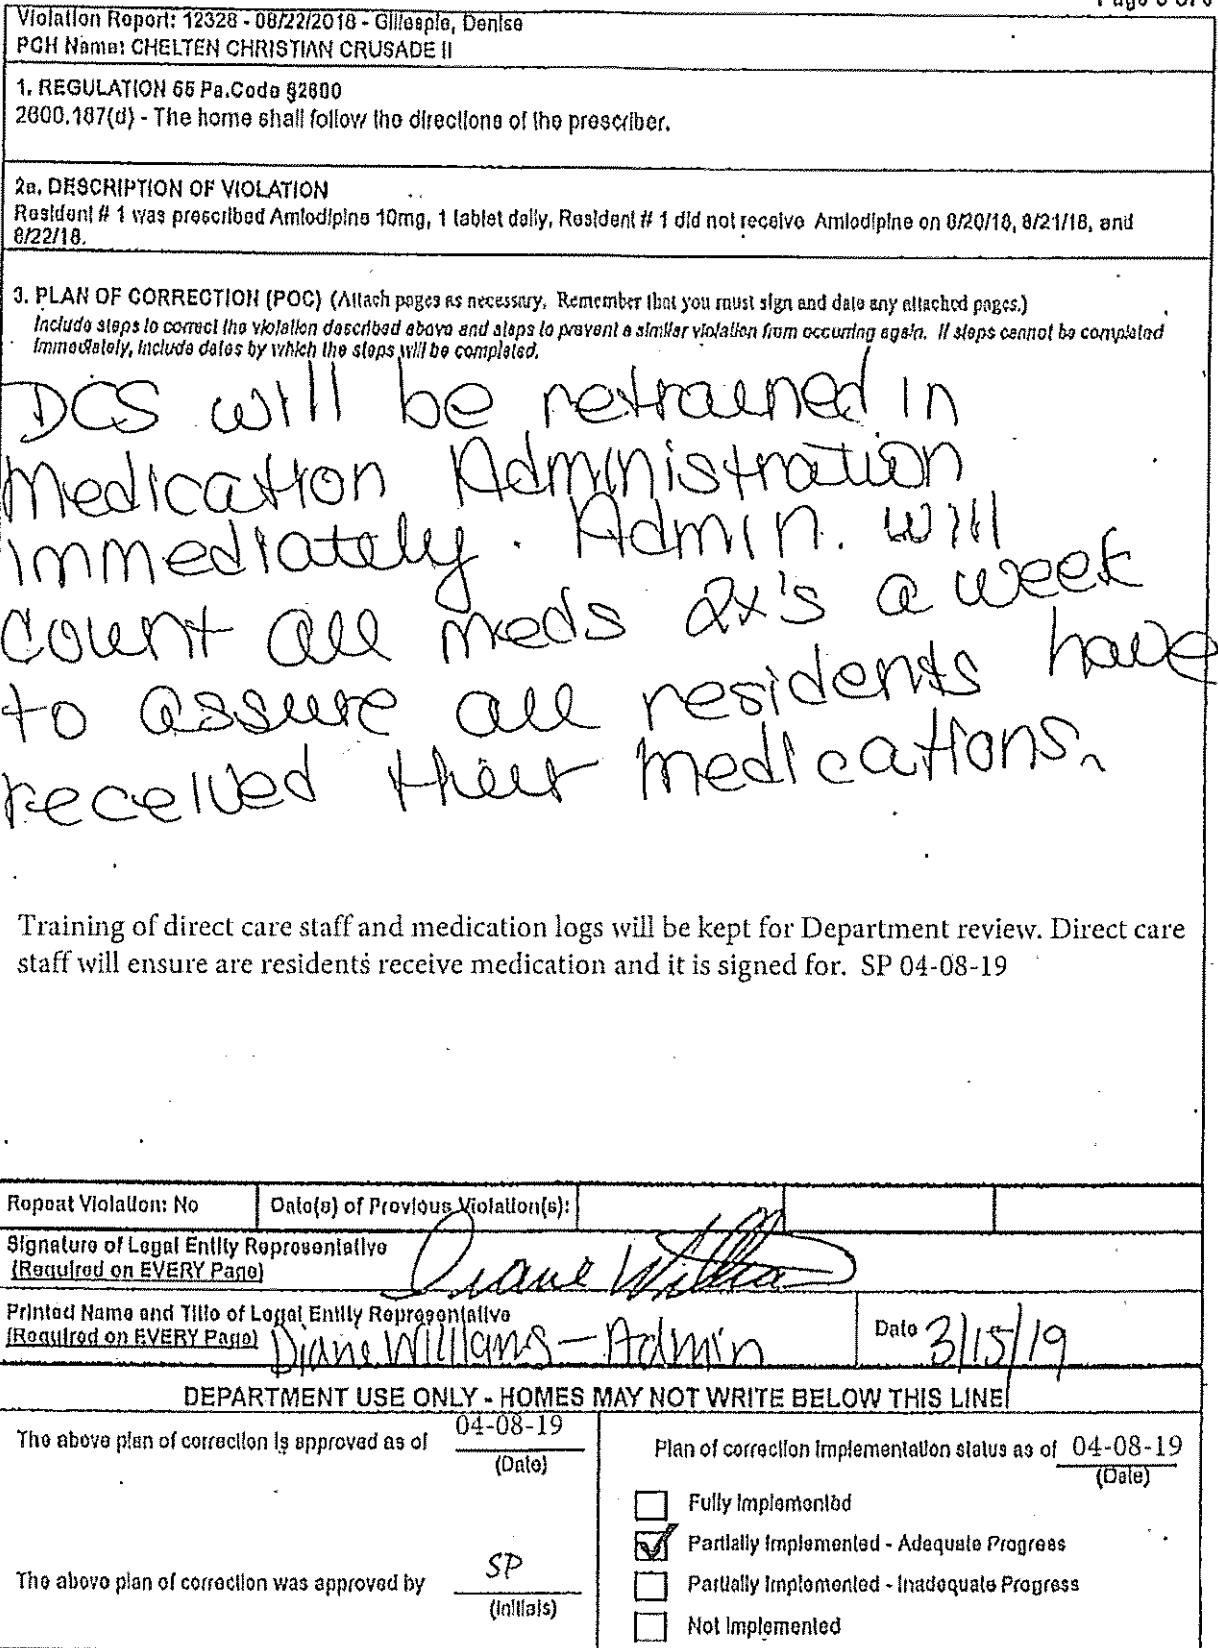 Violation Report: 12328 - 08/22/2018 - Gillespie, Denise
PCH Name: CHELTEN CHRISTIAN CRUSADE II
1. REGULATION 55 Pa.Code §2600
2600.187(d) - The home shall follow the directions of the prescriber.
2a. DESCRIPTION OF VIOLATION
Resident # 1 was prescribed Amlodipine 10mg, 1 tablet daily, Resident # 1 did not receive Amlodipine on 8/20/18, 8/21/18, and
8/22/18.
3. PLAN OF CORRECTION (POC) (Attach pages as necessary. Remember that you must sign and date any attached pages.)
Include steps to correct the violation described above and steps to prevent a similar violation from occurring again. If steps cannot be completed
immediately, include dates by which the steps will be completed.
DCS will be retrained in
Medication Administration
immediately. Admin. will
count all meds 2x's a week
to assure all residents have
received their medications.
Training of direct care staff and medication logs will be kept for Department review. Direct care
staff will ensure are residents receive medication and it is signed for. SP 04-08-19
Repeat Violation: No Date(s) of Previous Violation(s):
Signature of Legal Entity Representative
(Required on EVERY Page) Diane Williams
Printed Name and Title of Legal Entity Representative
(Required on EVERY Page) Diane Williams - Admin Date 3/15/19
DEPARTMENT USE ONLY - HOMES MAY NOT WRITE BELOW THIS LINE
The above plan of correction is approved as of 04-08-19
(Date)
Plan of correction implementation status as of 04-08-19
(Date)
Fully Implemented
Partially Implemented - Adequate Progress
Partially Implemented - Inadequate Progress
Not Implemented
The above plan of correction was approved by SP
(Initials)